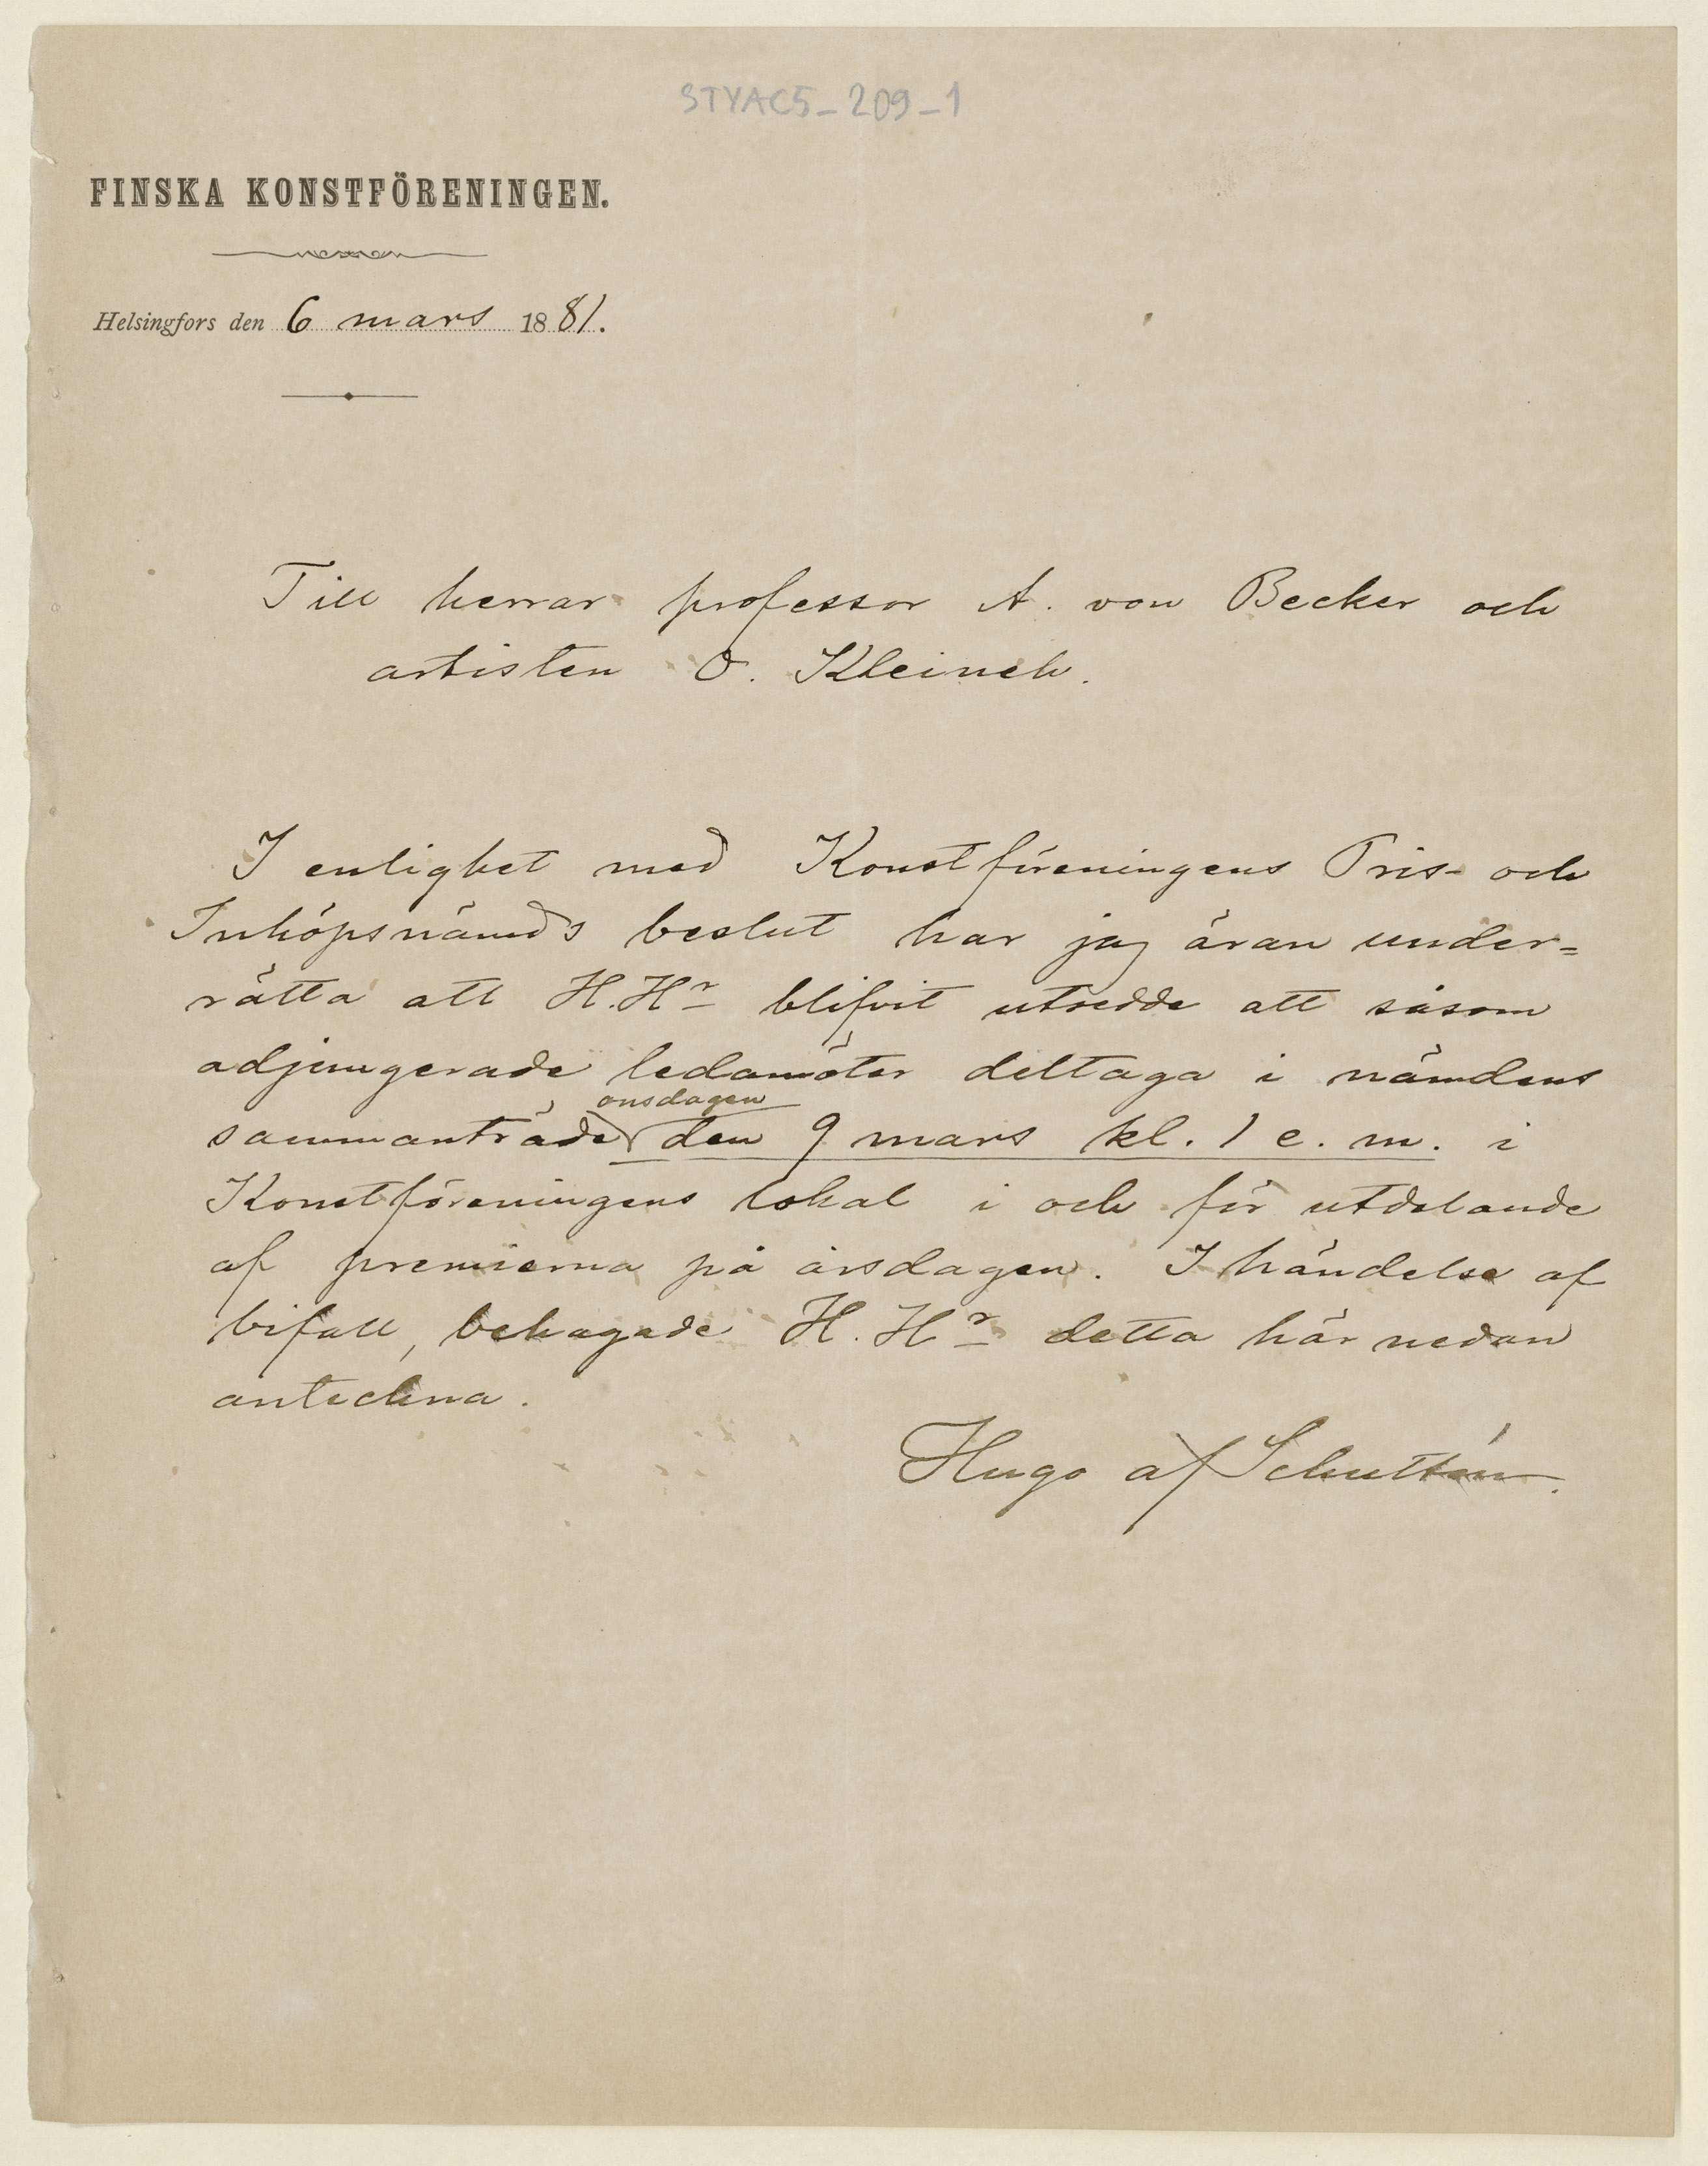 STYAC5_209_1
FINSKA KONSTFÖRENINGEN.
Helsingfors den 6 mars 1881.
Till herrar professor A. von Becker och
artisten O. Kleineh.
I enlighet med Konstföreningens Pris- och
Inköpsnämds beslut har jag äran under=
rätta att H.Hr blifvit utsedde att såsom
adjungerade ledamöter deltaga i nämdens
onsdagen
sammanträde den 9 mars kl. 1 e. m. i
Konstföreningens lokal i och för utdelande
af premierna på årsdagen. I händelse af
bifall, behagade H. Hr detta här nedan
anteckna.
Hugo af Schultén.